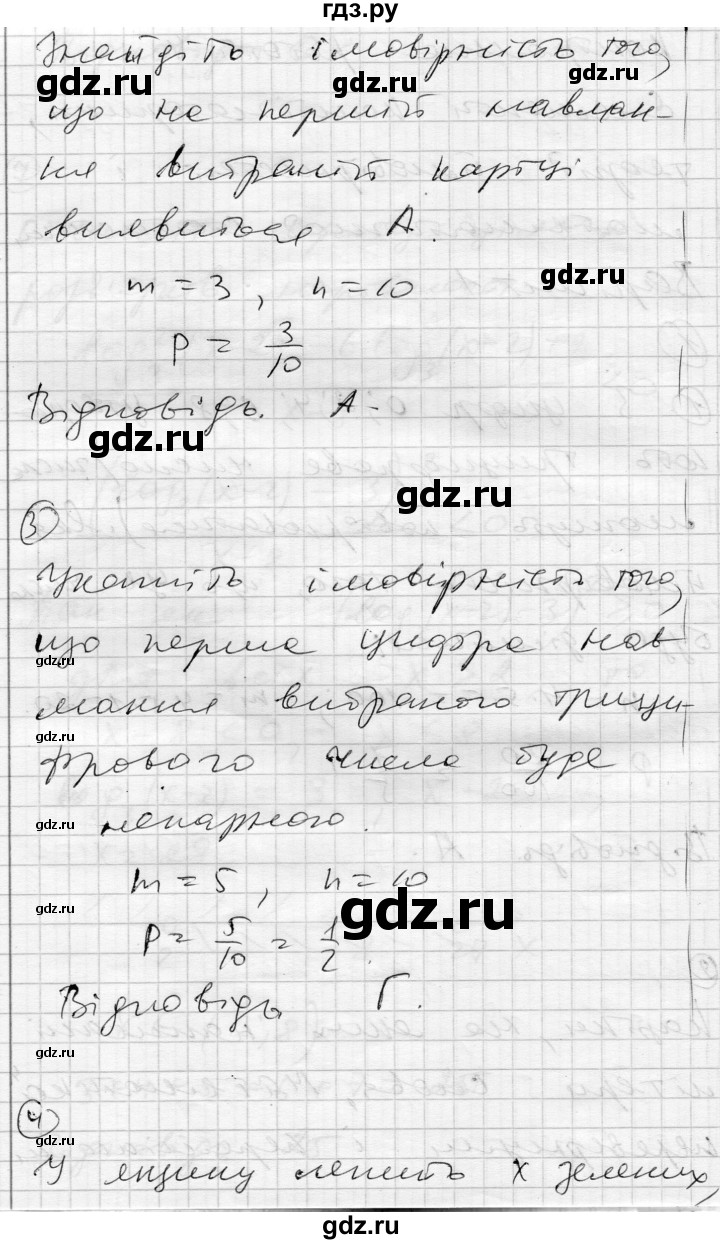 гдз.ру
Знайдіть імовірність того,
gdz.ru
gdz.ru
що на першій навман-
gdz.ru
ня вибраній картці
gdz.ru
виявиться А.
m = 3, n = 10
gdz.ru
P = 3/10
Відповідь. А.
gdz.ru
gdz.ru
3
Укажіть імовірність того,
gdz.ru
що перша цифра нав
gdz.ru
мання вибраного трици-
gdz.ru
фрового числа буде
gdz.ru
непарною.
m = 5, n = 10
gdz.ru
gdz.ru
P = 5/10 = 1/2.
Відповідь Г.
gdz.ru
4
gdz.ru
У ящику лежить x зелених,
gdz.ru